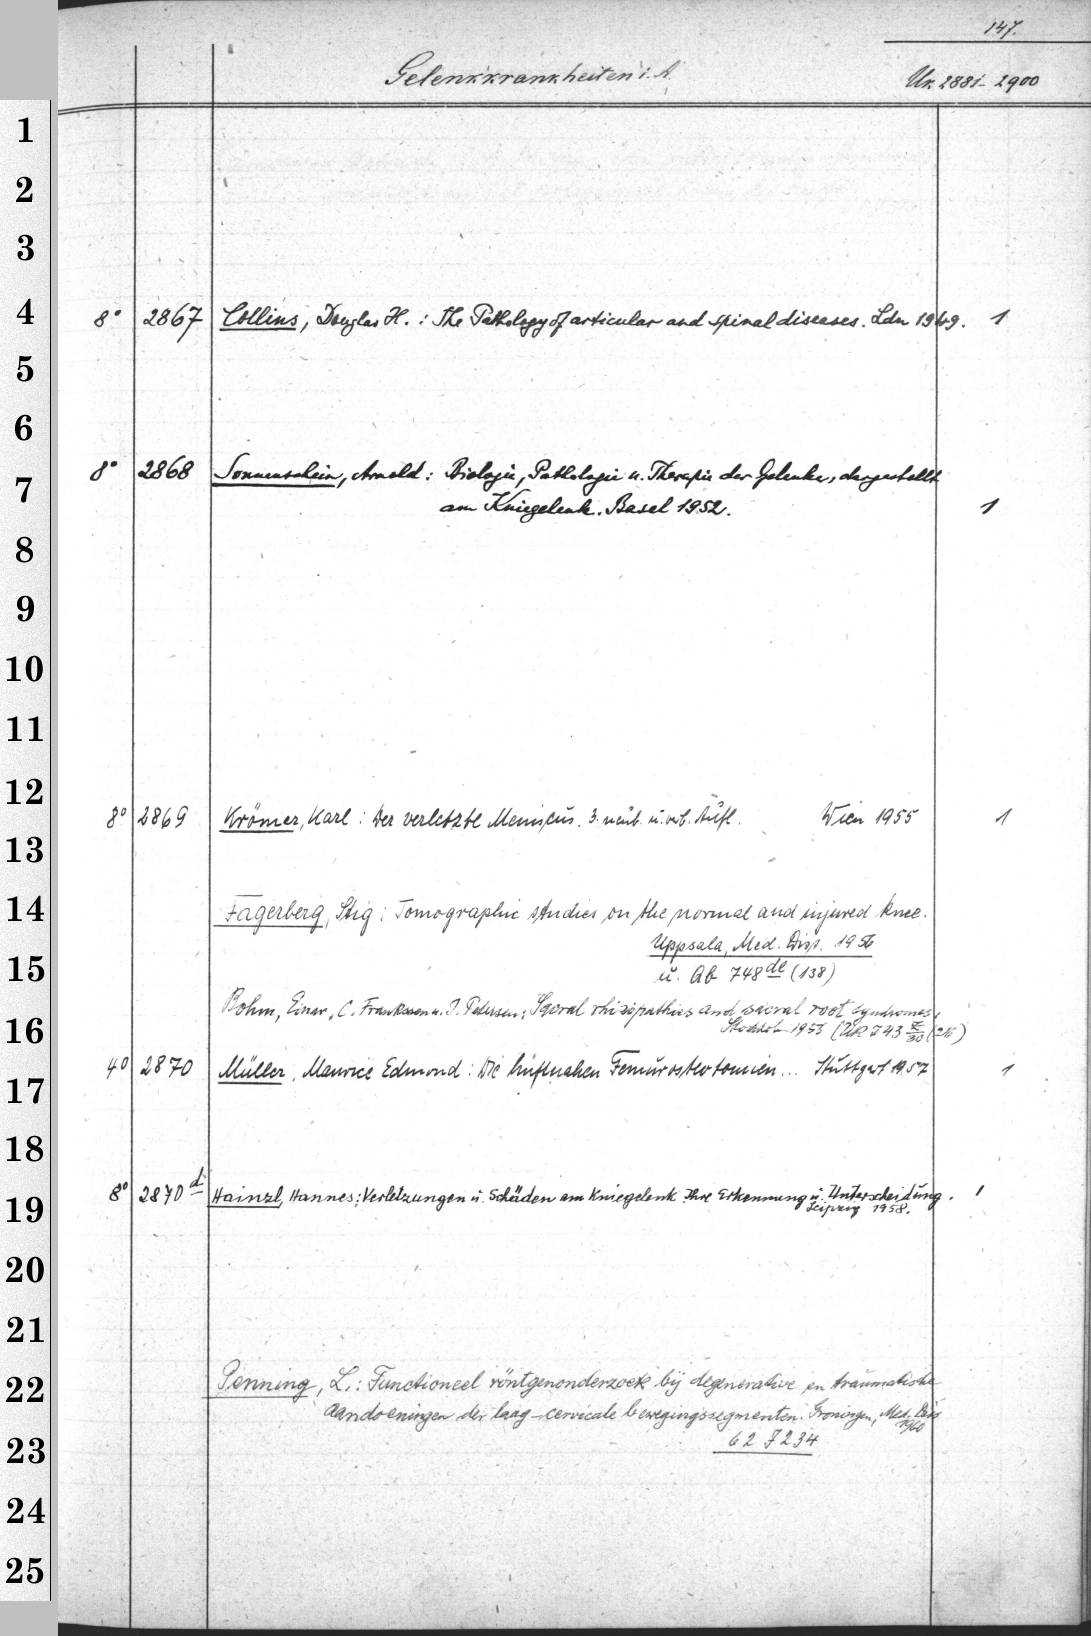 147.
Gelenkkrankheiten i. A.
Nr. 2881-2900
8° 2867 Collins, Douglas H. : The Pathology of articular and spinal diseases. Ldn 1949. 1
8° 2868 Sonnenschein, Arnold : Biologie, Pathologie u. Therapie der Gelenke, dargestellt
am Kniegelenk. Basel 1952. 1
8° 2869 Krömer, Karl : Der verletzte Meniscus. 3. u. verb. Aufl. Wien 1955 1
Fagerberg, Stig : Tomographic studies on the normal and injured knee.
Uppsala, Med. Diss. 1956
u. Ab 748 de (138)
Bohm, Einar, C. Franksson u. I. Petersen : Sacral rhizopathies and sacral root syndromes,
Stockholm 1956 (216)
4° 2870 Müller, Maurice Edmond : Die hüftnahen Femurosteotomien... Stuttgart 1957 1
8° 2870 d Hainzl, Hannes : Verletzungen u. Schäden am Kniegelenk Ihre Erkennung u. Unterscheidung. 1
Leipzig 1958.
Penning, L. : Functioneel röntgenonderzoek bij degenerative en traumatische
aandoeningen der laag-cervicale bewegingssegmenten. Groningen, Med. Diss
1960
62 7234
1
2
3
4
5
6
7
8
9
10
11
12
13
14
15
16
17
18
19
20
21
22
23
24
25